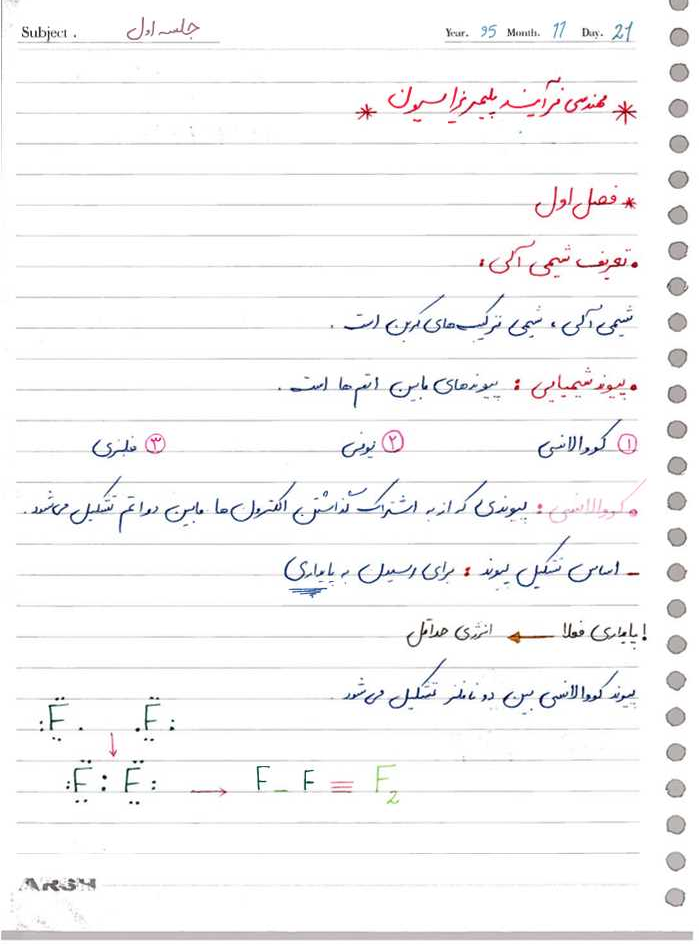 Subject . جلسه اول Year. 95 Month. 11 Day. 21
* مهندسی فرآیند پلیمریزاسیون *
* فصل اول
• تعریف شیمی آلی :
شیمی آلی ، شیمی ترکیب‌های کربن است .
• پیوند شیمیایی : پیوندهای مابین اتم‌ها است .
① کووالانسی ② یونی ③ فلزی
• کووالانسی : پیوندی که از به اشتراک گذاشتن الکترون ها مابین دو اتم تشکیل می‌شود .
- اساس تشکیل پیوند : برای رسیدن به پایداری
! پایداری فعلا ← انرژی حداقل
پیوند کووالانسی بین دو نافلز تشکیل می‌شود .
:F̈. .F̈:
↓
:F̈ : F̈: → F - F ≡ F₂
ARSH